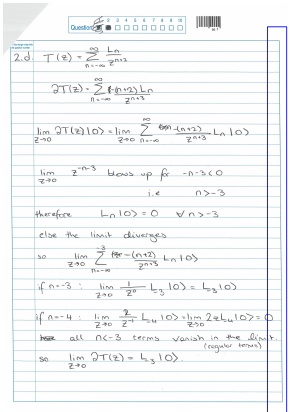 Question 2 3 4 5 6 7 8 9 10
2.d. T(z) = ∑_{n=-∞}^{∞} L_n / z^{n+2}
∂T(z) = ∑_{n=-∞}^{∞} -(n+2) L_n / z^{n+3}
lim_{z→0} ∂T(z)|0⟩ = lim_{z→0} ∑_{n=-∞}^{∞} -(n+2) / z^{n+3} L_n |0⟩
lim_{z→0} z^{-n-3} blows up for -n-3<0
i.e n>-3
therefore L_n|0⟩ = 0 ∀ n>-3
else the limit diverges
so lim_{z→0} ∑_{n=-∞}^{-3} -(n+2) / z^{n+3} L_n |0⟩
if n=-3 : lim_{z→0} 1/z^0 L_{-3} |0⟩ = L_{-3} |0⟩
if n=-4 : lim_{z→0} 2/z^{-1} L_{-4} |0⟩ = lim_{z→0} 2z L_{-4} |0⟩ = 0
all n<-3 terms vanish in the limit.
(regular terms)
so lim_{z→0} ∂T(z) = L_{-3} |0⟩.